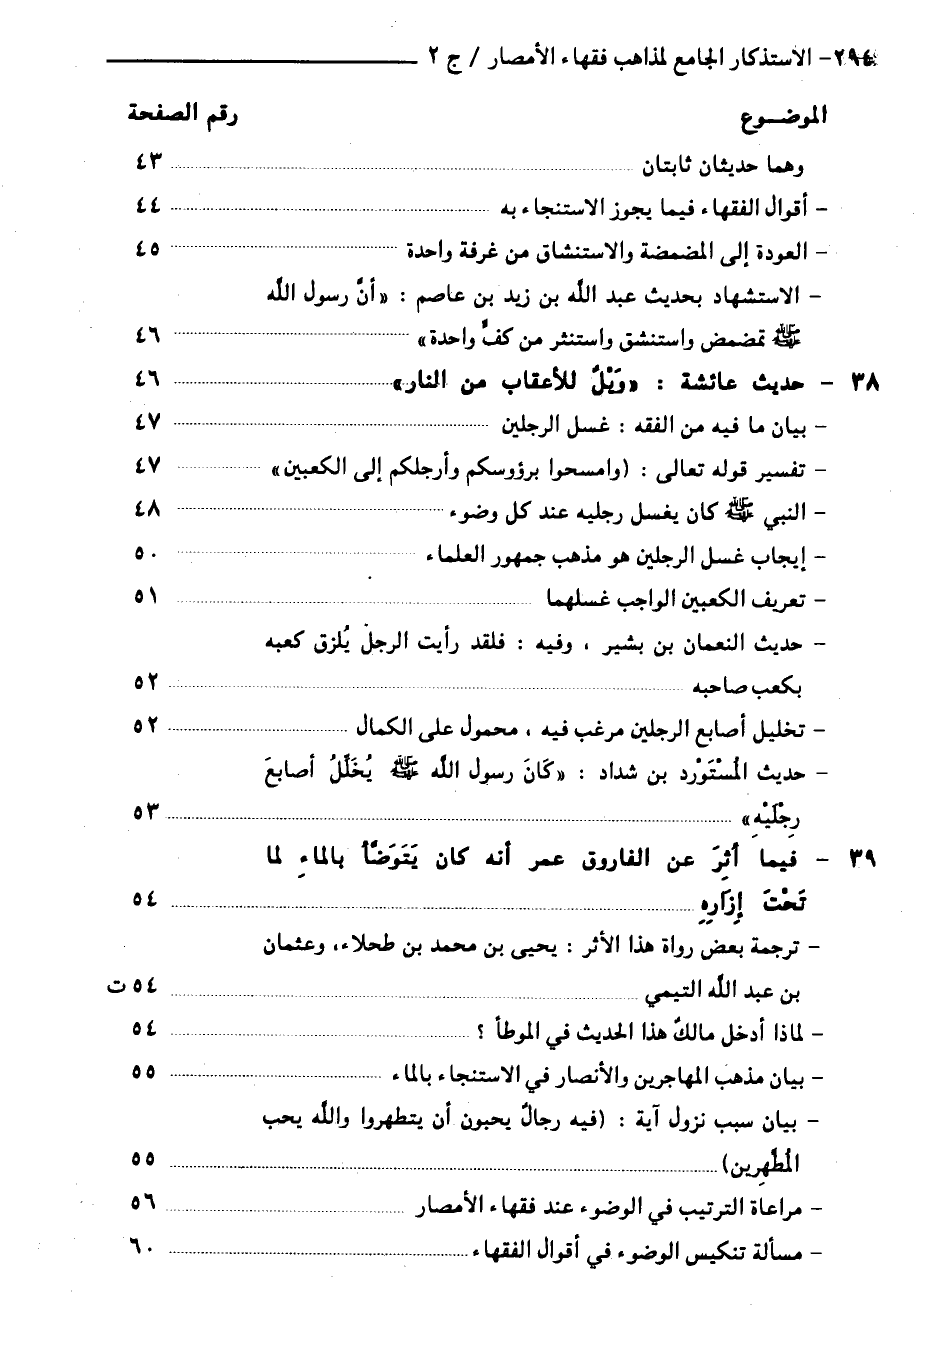 ٢٩٤ - الاستذكار الجامع لمذاهب فقهاء الأمصار / ج ٢
الموضـــوع رقم الصفحة
وهما حديثان ثابتان ٤٣
- أقوال الفقهاء فيما يجوز الاستنجاء به ٤٤
- العودة إلى المضمضة والاستنشاق من غرفة واحدة ٤٥
- الاستشهاد بحديث عبد الله بن زيد بن عاصم : «أنَّ رسول الله
ﷺ تمضمض واستنشق واستنثر من كفٍّ واحدة» ٤٦
٣٨ - حديث عائشة : «وَيْلٌ للأعقاب من النار» ٤٦
- بيان ما فيه من الفقه : غسل الرجلين ٤٧
- تفسير قوله تعالى : (وامسحوا برؤوسكم وأرجلكم إلى الكعبين» ٤٧
- النبي ﷺ كان يغسل رجليه عند كل وضوء ٤٨
- إيجاب غسل الرجلين هو مذهب جمهور العلماء ٥٠
- تعريف الكعبين الواجب غسلهما ٥١
- حديث النعمان بن بشير ، وفيه : فلقد رأيت الرجل يُلزق كعبه
بكعب صاحبه ٥٢
- تخليل أصابع الرجلين مرغب فيه ، محمول على الكمال ٥٢
- حديث المُسْتَوْرد بن شداد : «كَانَ رسول الله ﷺ يُخَلِّلُ أصابعَ
رِجْلَيْهِ» ٥٣
٣٩ - فيما أُثِرَ عن الفاروق عمر أنه كان يَتَوَضَّأ بالماءِ لما
تَحْتَ إِزَارِهِ ٥٤
- ترجمة بعض رواة هذا الأثر : يحيى بن محمد بن طحلاء، وعثمان
بن عبد الله التيمي ٥٤ ت
- لماذا أدخل مالكٌ هذا الحديث في الموطأ ؟ ٥٤
- بيان مذهب المهاجرين والأنصار في الاستنجاء بالماء ٥٥
- بيان سبب نزول آية : (فيه رجالٌ يحبون أن يتطهروا والله يحب
المُطَّهِرين) ٥٥
- مراعاة الترتيب في الوضوء عند فقهاء الأمصار ٥٦
- مسألة تنكيس الوضوء في أقوال الفقهاء ٦٠